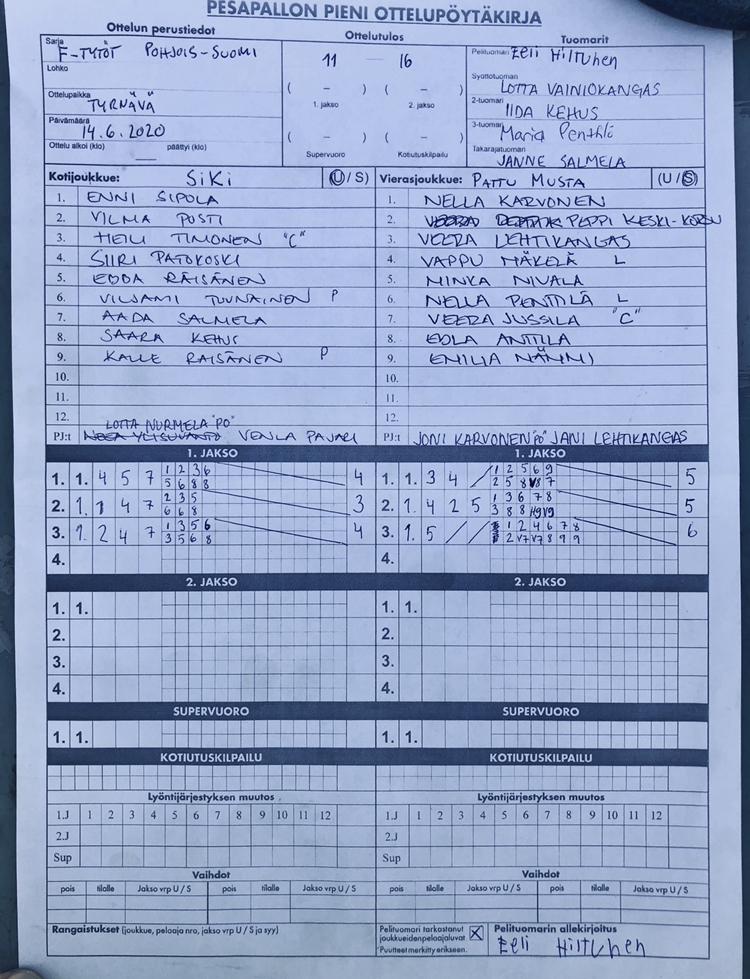 PESÄPALLON PIENI OTTELUPÖYTÄKIRJA
Ottelun perustiedot
Sarja
F-TYTÖT POHJOIS-SUOMI
Lohko
Ottelupaikka
TYRNÄVÄ
Päivämäärä
14.6.2020
Ottelu alkoi (klo) päättyi (klo)
Ottelutulos
11 16
( – ) ( – )
1. jakso 2. jakso
( – ) ( – )
Supervuoro Kotiutuskilpailu
Tuomarit
Pelituomari Eeli Hiltunen
Syöttötuomari
LOTTA VAINIOKANGAS
2-tuomari
IIDA KEHUS
3-tuomari
Maria Penttilä
Takarajatuomari
JANNE SALMELA
Kotijoukkue: SiKi (U / S)
1. ENNI SIPOLA
2. VILMA POSTI
3. HEILI TIMONEN "C"
4. SIIRI PATOKOSKI
5. EDDA RÄISÄNEN
6. VILJAMI TUUNAINEN P
7. AADA SALMELA
8. SAARA KEHUS
9. KALLE RÄISÄNEN P
10.
11.
12.
LOTTA NURMELA "PO"
PJ:t VENLA PAJARI
Vierasjoukkue: PATTU MUSTA (U / S)
1. NELLA KARVONEN
2. PEPPI KESKI-KORSU
3. VEERA LEHTIKANGAS
4. VAPPU MÄKELÄ L
5. MINKA NIVALA
6. NELLA PENTTILÄ L
7. VEERA JUSSILA "C"
8. EDLA ANTTILA
9. EMILIA NÄNNI
10.
11.
12.
PJ:t JONI KARVONEN "PO" JANI LEHTIKANGAS
1. JAKSO
1. 1. 4 5 7 1 2 3 6 4
5 6 8 8
2. 1. 1 4 7 2 3 5 3
6 6 8
3. 1. 2 4 7 1 3 5 6 4
3 5 6 8
4.
1. JAKSO
1. 1. 3 4 / 1 2 5 6 9 5
2 5 8 7
2. 1. 4 2 5 1 3 6 7 8 5
3 8 8
3. 1. 5 / / 1 2 4 6 7 8 6
2 V7 V7 8 9 9
4.
2. JAKSO
1. 1.
2.
3.
4.
2. JAKSO
1. 1.
2.
3.
4.
SUPERVUORO
1. 1.
SUPERVUORO
1. 1.
KOTIUTUSKILPAILU
KOTIUTUSKILPAILU
Lyöntijärjestyksen muutos
1.J 1 2 3 4 5 6 7 8 9 10 11 12
2.J
Sup
Lyöntijärjestyksen muutos
1.J 1 2 3 4 5 6 7 8 9 10 11 12
2.J
Sup
Vaihdot
pois tilalle Jakso vrp U / S pois tilalle Jakso vrp U / S
Vaihdot
pois tilalle Jakso vrp U / S pois tilalle Jakso vrp U / S
Rangaistukset (joukkue, pelaaja nro, jakso vrp U / S ja syy)
Pelituomari tarkastanut
joukkueidenpelaajaluvat X
*Puutteet merkitty erikseen.
Pelituomarin allekirjoitus
Eeli Hiltunen